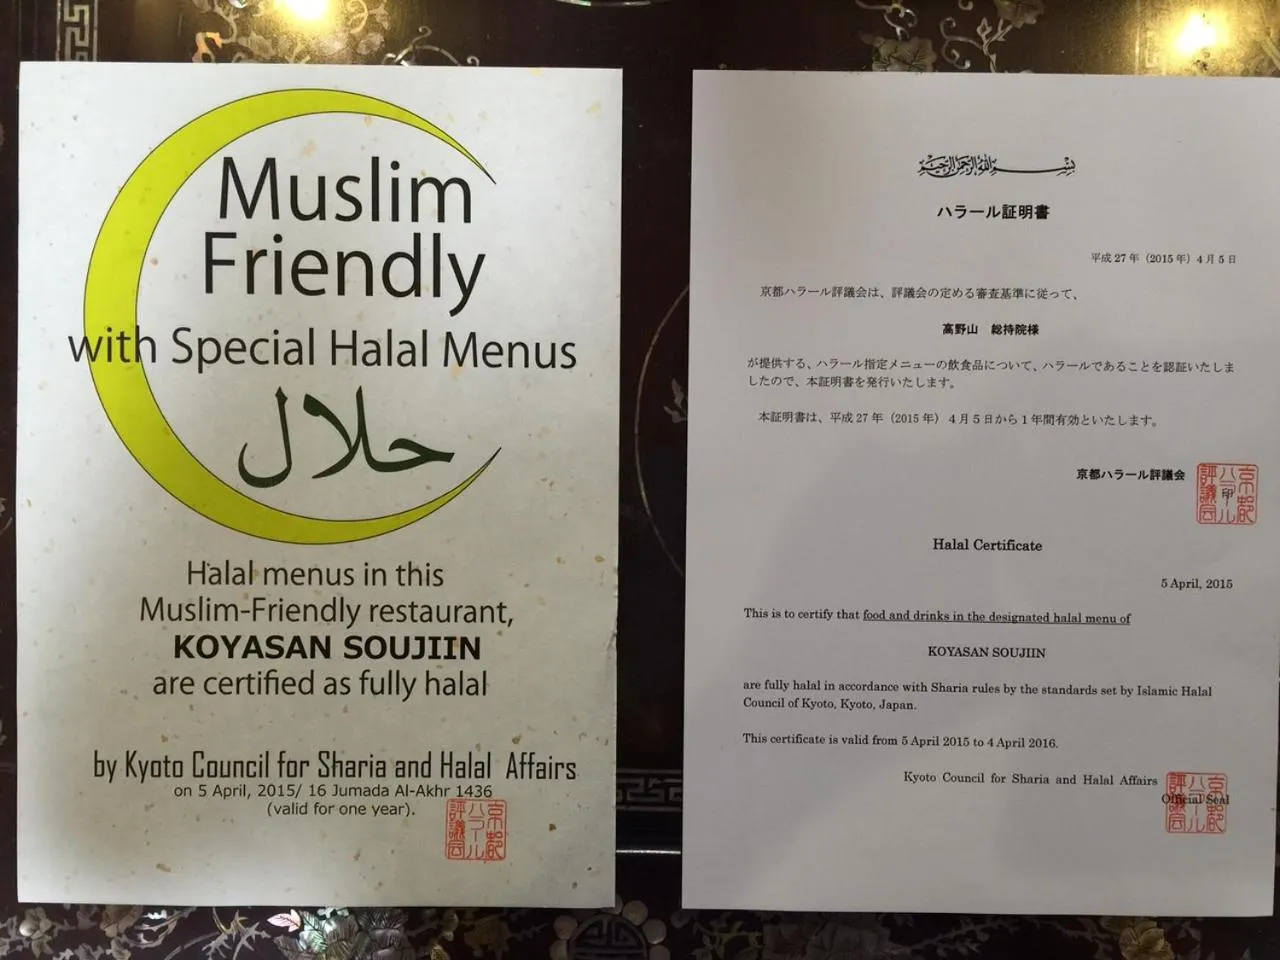 Muslim
Friendly
with Special Halal Menus
حلال
Halal menus in this
Muslim-Friendly restaurant,
KOYASAN SOUJIIN
are certified as fully halal
by Kyoto Council for Sharia and Halal Affairs
on 5 April, 2015/ 16 Jumada Al-Akhr 1436
(valid for one year).
京都
ハラール
評議会
بسم الله الرحمن الرحيم
ハラール証明書
平成 27 年（2015 年）4 月 5 日
京都ハラール評議会は、評議会の定める審査基準に従って、
高野山 総持院様
が提供する、ハラール指定メニューの飲食品について、ハラールであることを認証いたしま
したので、本証明書を発行いたします。
本証明書は、平成 27 年（2015 年）４月５日から１年間有効といたします。
京都ハラール評議会
印
京都
ハラール
評議会
Halal Certificate
5 April, 2015
This is to certify that food and drinks in the designated halal menu of
KOYASAN SOUJIIN
are fully halal in accordance with Sharia rules by the standards set by Islamic Halal
Council of Kyoto, Kyoto, Japan.
This certificate is valid from 5 April 2015 to 4 April 2016.
Kyoto Council for Sharia and Halal Affairs
Official Seal
京都
ハラール
評議会